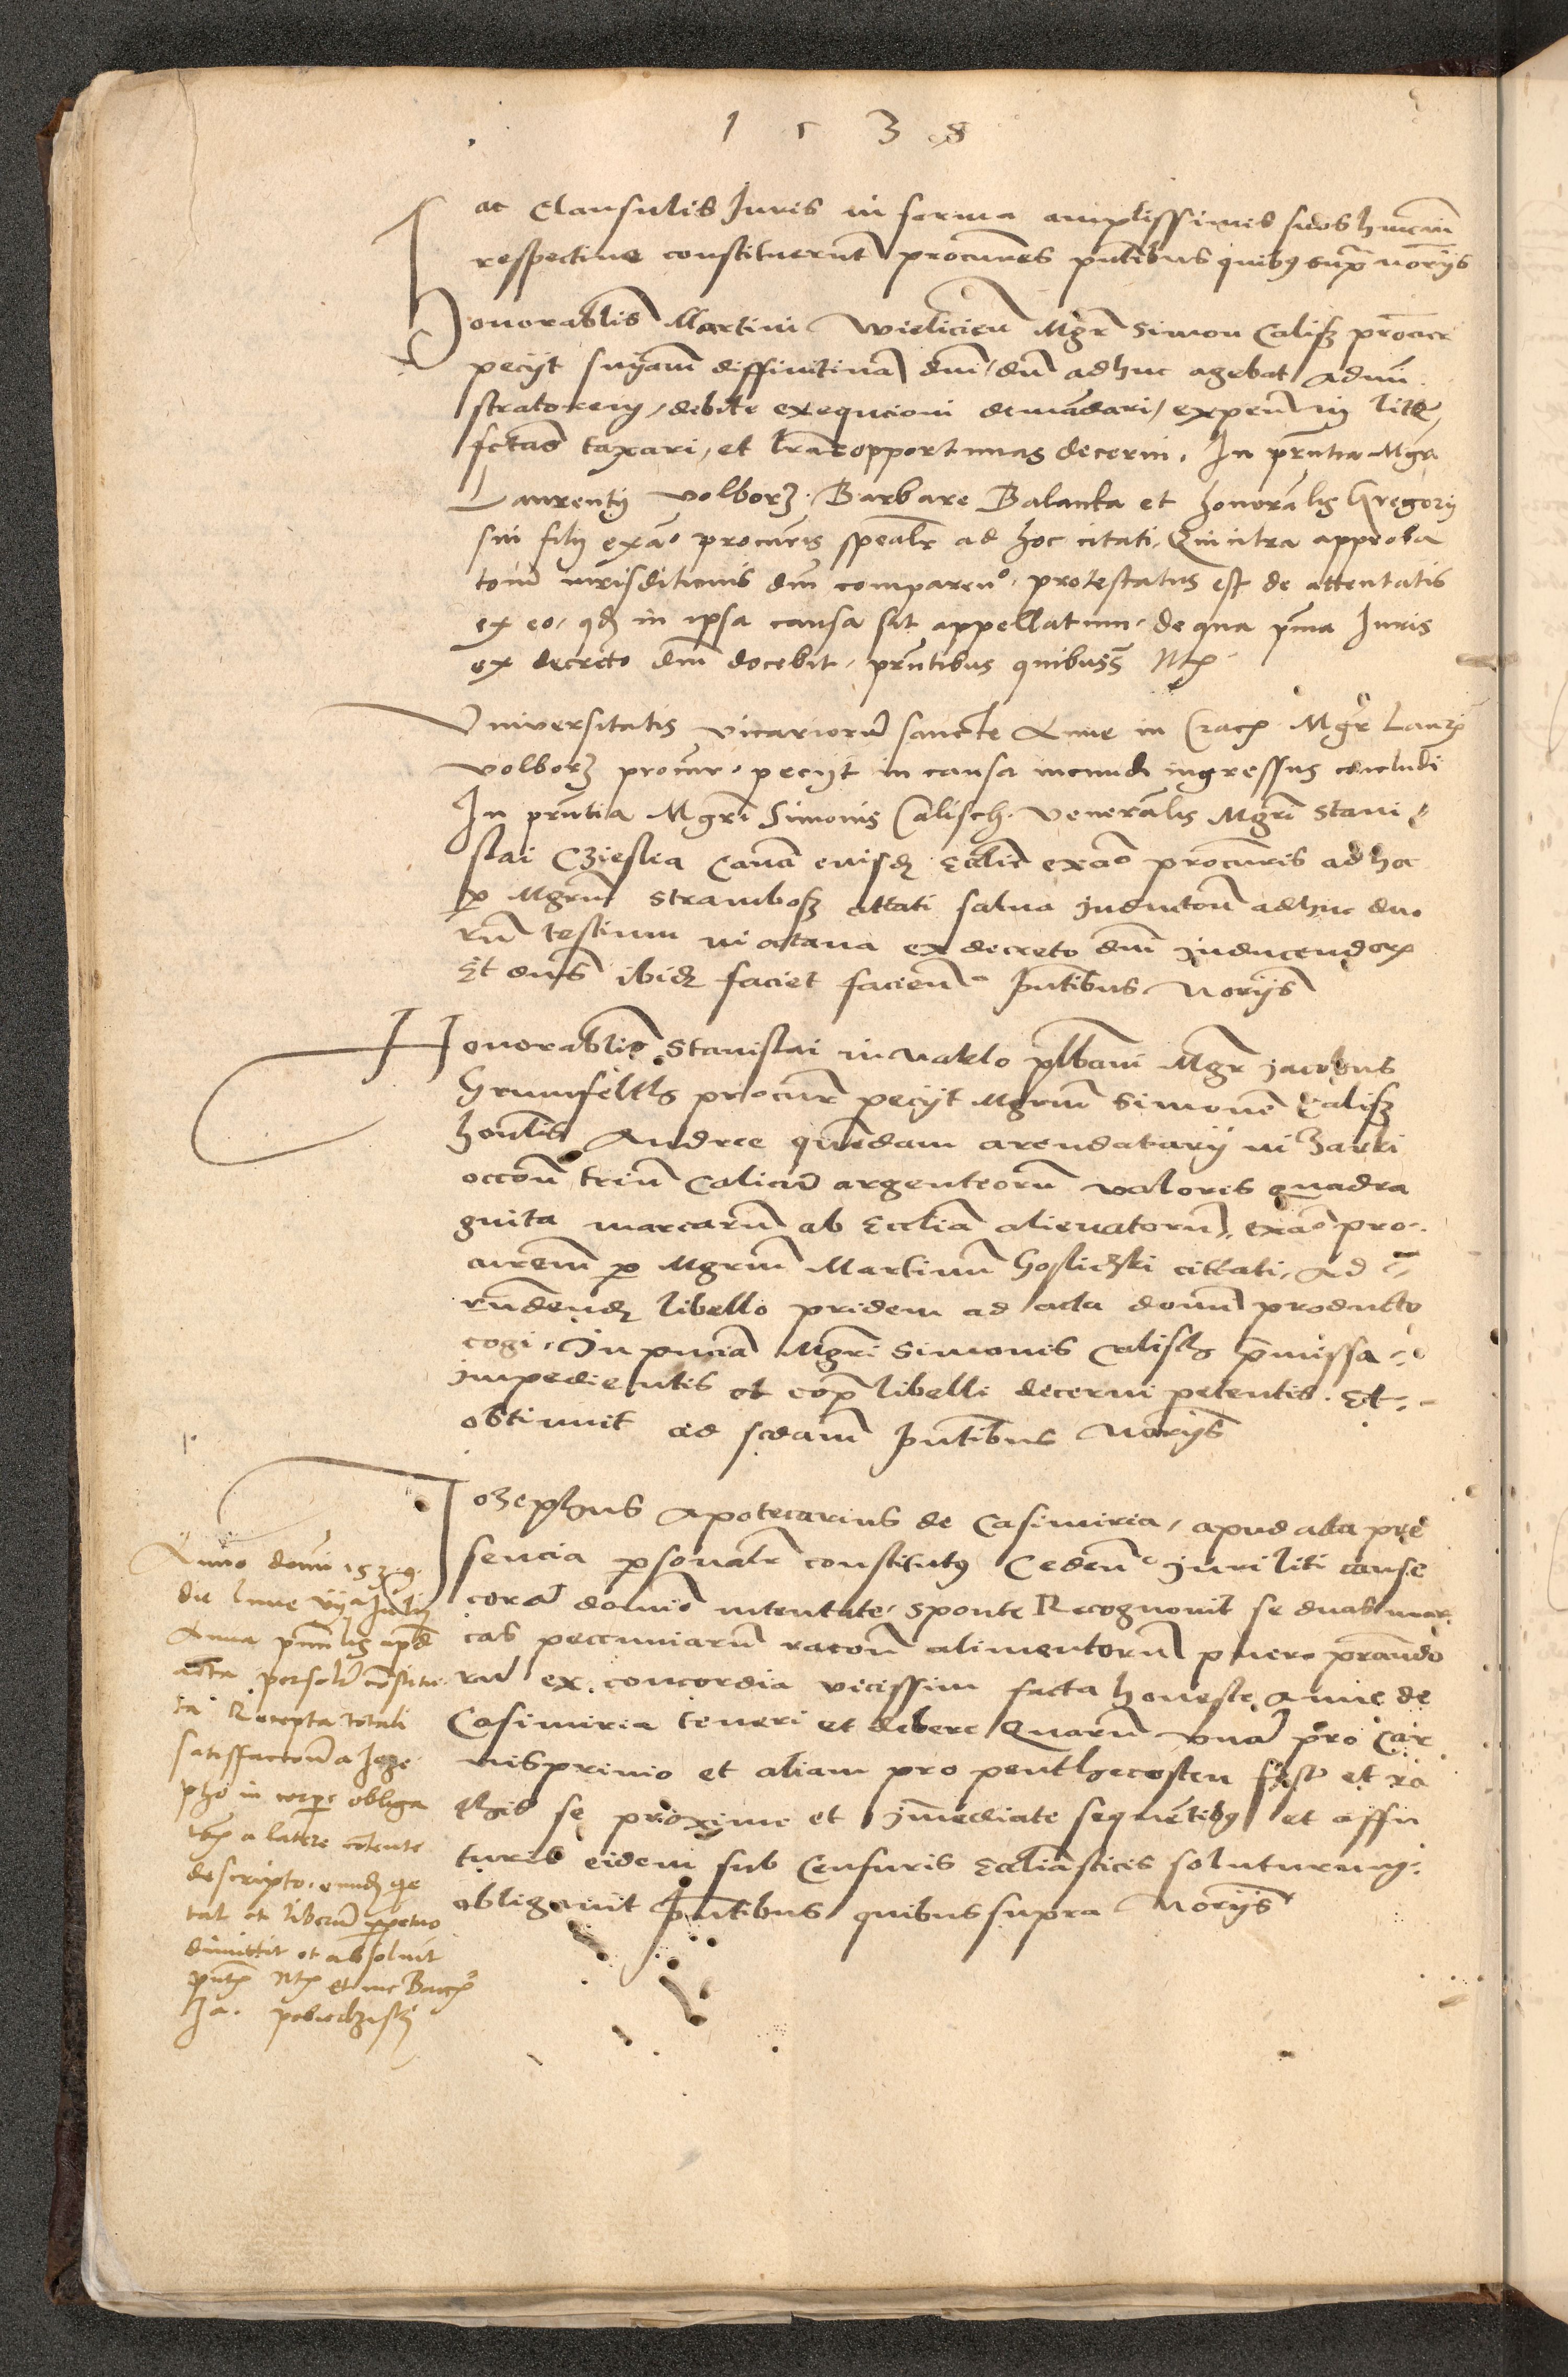 1 5 3 8
ac Clausulis Juris in forma amplissimis suos hincin
respective constituerunt procures pntibus quibus supra noriis
Honorabilis Martini Wieliciens Mgr Simon Calisz
peciit snyam diffinitivam dni dum adhuc agebat admi
stratorem, debite exequcioni demandari, expens in lite
fctas taxari, et lras opportunas decerni. In prntia Mgri
Laurentii volborz Barbare Balanka et honoralis Gregorii
sui filii exao procuris spealr ad hoc citati, Qui citra approba
tom iurisditionis dni compareno protestatus est de attentatis
ex eo, qd in ipsa causa sit appellatum, de qua pma Juris
ex decreto dni docebit, prntibus quibus Ntp
Universitatis vicariorum sancte Anne in Crac Mgr Laur
volborz procur peciit in causa incundi ingressus concludi
In prntia Mgri Simonis Calisch veneralis Mgri Stani
slai Cziesla Canci eiusd Ecclie exao procuris ad hoc
per Mgrum Strambosz cittati salva inductom adhuc duo
rum testium in octava ex decreto dni inducendor
Et dns ibid faciet faciens pntibus Noriis
Honorabilis Stanislai in plbani Mgr Jacobus
Grunfelth procur peciit Mgrum Simonem Calisz
honlis Andree quondam arendatarii in Zarki
occom trium Calicum argenteorum valoris quadra
ginta marcarum ab Ecclia alienatorum exao pro
curem per Mgrum Martinum Goslicski cittati, ad
rndend libello pridem ad acta domi producto
cogi. In pncia Mgri Simonis Calisch pmissa
impedientis et cop libelli decerni petentis. Et
obtinuit ad scdam pntibus Noriis
Jozephus Apotecarius de Casimiria, apud acta pre
sencia psonalr constitutus Cedens iuri liti cause
coram domino intentate, sponte Recognovit se duas mar
cas peccuniarum racom alimentorum puero
rum ex concordia vicissim facta honeste Anne de
Casimiria teneri et debere Quarum unam pro Car
nisprivio et aliam pro penthecosten festis et ra
se proxime et immediate sequentibus et affu
turis eidem sub Censuris Eccliasticis soluturum
obligavit pntibus quibus supra Noriis
Anno domi 1539
die lune vii Julii
Anna pncilis apud
acta personlr constitu
ta Recepta totali
satisfactom a Joze
pho in corpe obliga
a latere contente
descripto, eund qe
tat et liberum ppetuo
dimittit et absolvit
pntp Ntp et me Bacc
Ja. pobiedziski